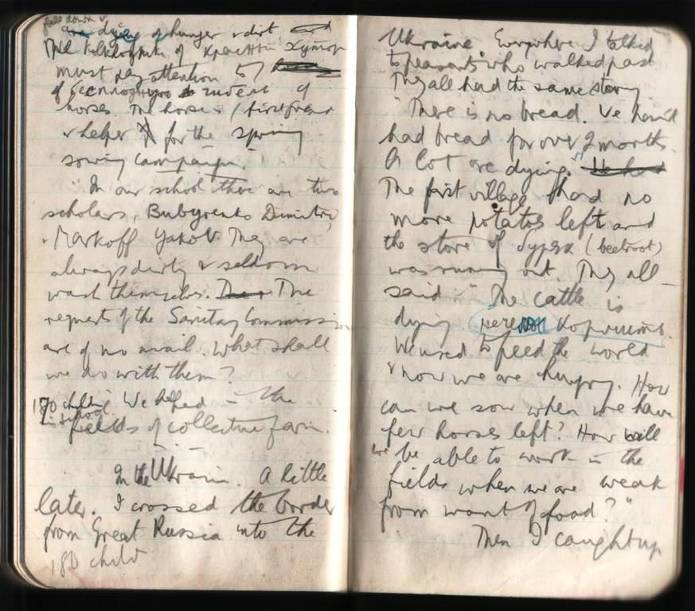 fall down &
are dying of hunger & dirt and
The of
must pay attention to
of
horses. The horse is
& helper for the spring
sowing campaign.
In our school there are two
scholars, Bubyrenko Dimitri,
& Markoff Yakob. They are
always dirty & seldom
wash themselves. The
request of the Sanitary Commission
are of no avail. What shall
we do with them?
180 children in school. We helped in the
fields of collective farm.
In the Ukraine. A little
later. I crossed the border
from Great Russia into the
180 child
Ukraine. Everywhere I talked
to peasants who walked past
They all had the same story
"There is no bread. We haven't
had bread for over 2 months.
A lot are dying."
The first village had no
more potatoes left and
the store of буряк (beetroot)
was running out. They all
said "The cattle is
dying нечем кормить.
We used to feed the world
& now we are hungry. How
can we sow when we have
few horses left? How will
we be able to work in the
fields when we are weak
from want of food?"
Then I caught up